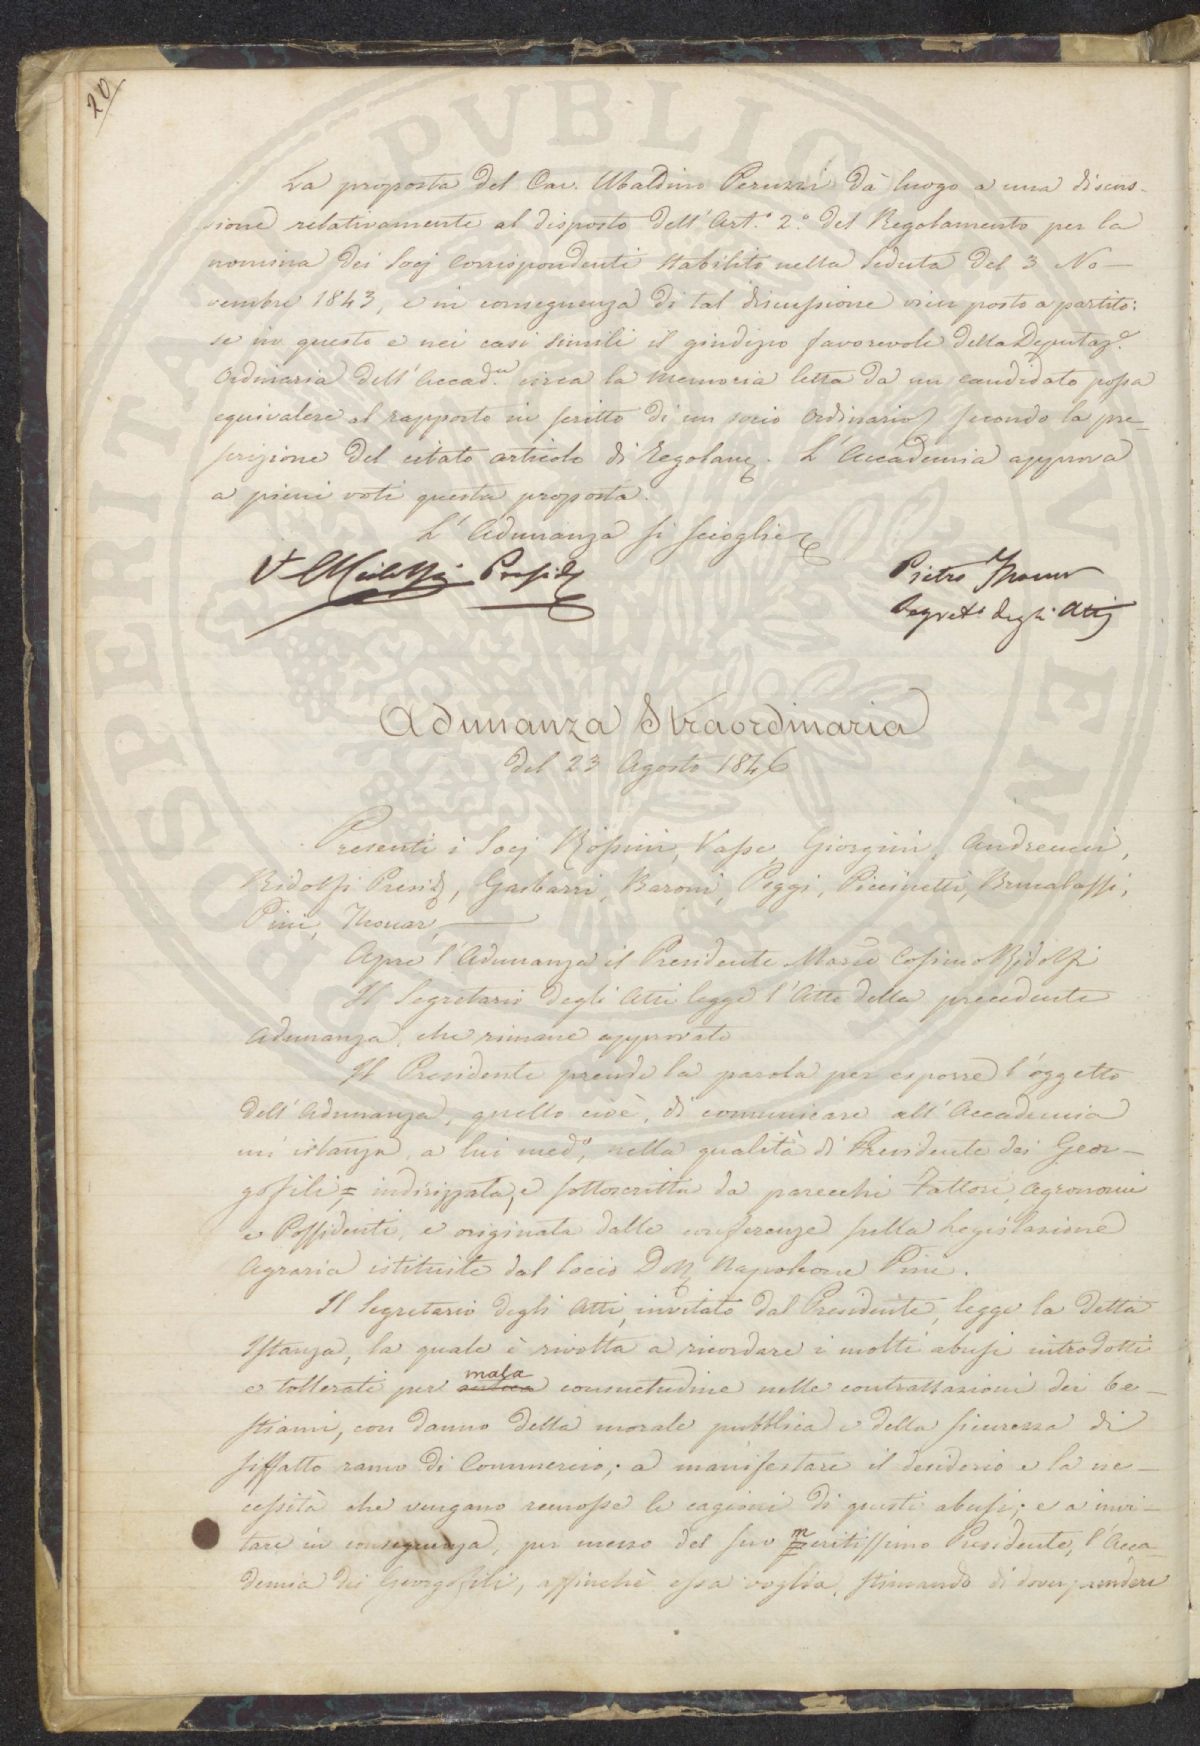 20
La proposta del Cav. Ubaldino Peruzzi dà luogo a una discus-
sione relativamente al disposto dell'Art.° 2.° del Regolamento per la
nomina dei Socj Corrispondenti stabilito nella Seduta del 3 No-
vembre 1843, e in conseguenza di tal discussione vien posto a partito:
se in questo e nei casi simili il giudizio favorevole della Deputaz.e
Ordinaria dell'Accad.ia circa la Memoria letta da un candidato possa
equivalere al rapporto in scritto di un socio Ordinario, secondo la pre-
scrizione del citato articolo di Regolam. L'Accademia approva
a pieni voti questa proposta.
L'Adunanza si scioglie
Presid
Pietro Thouar
Segret.° degli Atti
Adunanza Straordinaria
del 23 Agosto 1846
Presenti i Socj Rossini, Vasse, Giorgini, Andreucci,
Ridolfi Presid, Gasbarri, Baroni, Poggi, Piccinetti, Brucalassi,
Pini, Thouar,
Apre l'Adunanza il Presidente March Cosimo Ridolfi
Il Segretario degli Atti legge l'Atto della precedente
Adunanza, che rimane approvato
Il Presidente prende la parola per esporre l'oggetto
dell'Adunanza, quello cioè, di comunicare all'Accademia
un'istanza, a lui med.°, nella qualità di Presidente dei Geor-
gofili, indirizzata, e sottoscritta da parecchi Fattori, Agronomi
e Possidenti, e originata dalle conferenze sulla Legislazione
Agraria istituite dal Socio Dott Napoleone Pini.
Il Segretario degli Atti, invitato dal Presidente, legge la detta
Istanza, la quale è rivolta a ricordare i molti abusi introdotti
e tollerati per mala consuetudine nelle contrattazioni dei be-
stiami, con danno della morale pubblica e della sicurezza di
siffatto ramo di Commercio; a manifestare il desiderio e la ne-
cessità che vengano remosse le cagioni di questi abusi; e a invi-
tare in conseguenza, per mezzo del suo meritissimo Presidente, l'Acca-
demia dei Georgofili, affinchè essa voglia, stimando di dover prendere